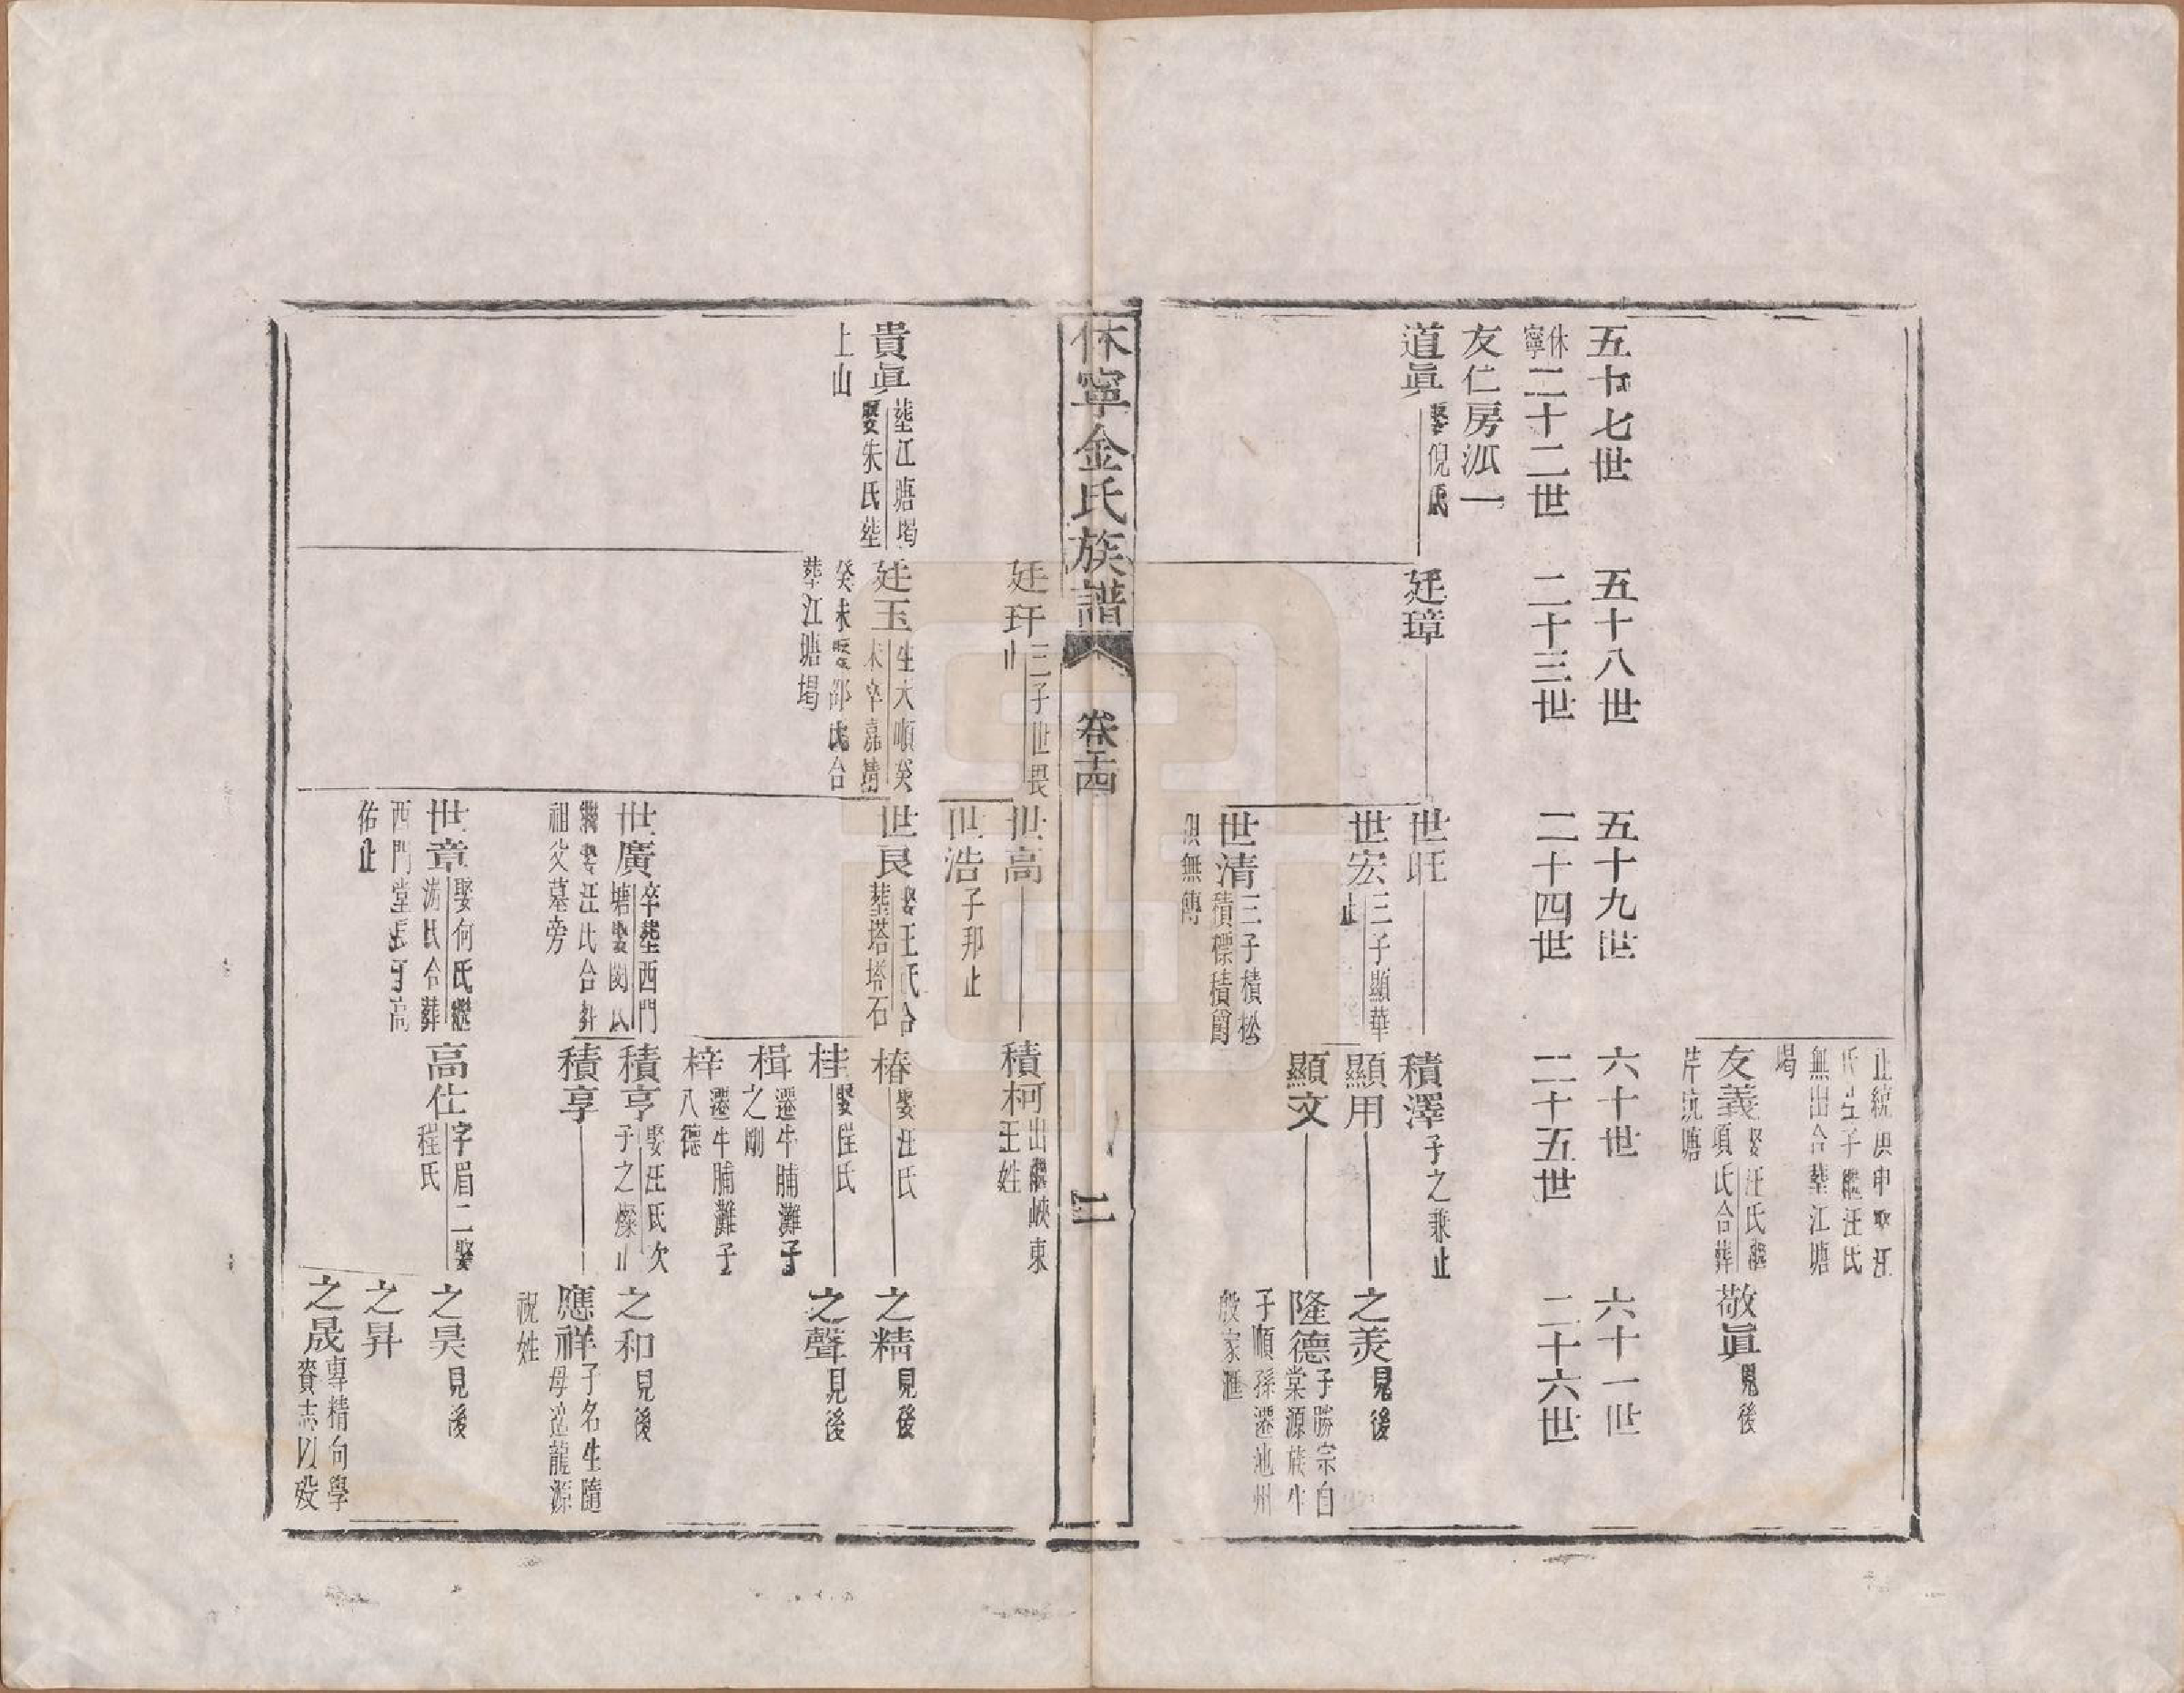 止統庚申娶汪
氏生子繼汪氏
無出合塟江塘
堨
友義娶汪氏繼
項氏合葬
芹坑塘
敬眞見後
五十七世
五十八世
五十九世
六十世
六十一世
休寧二十二世
二十三世
二十四世
二十五世
二十六世
友仁房派一
道眞娶倪氏
廷璋
世旺
積澤子之兼止
世宏三子顯華
止
顯用
之美見後
顯文
隆德子勝宗自
棠源族牛
子順孫遷池州
殷家滙
世清三子積松
積標積爵
俱無傳
休寧金氏族譜
卷十四
二
廷玕三子世畏
止
世高
積柯出繼峽東
王姓
世浩子邦止
貴眞塟江塘堨
娶朱氏塟
上山
廷玉生大順癸
未卒嘉靖
癸未娶邵氏合
塟江塘堨
世良娶王氏合
塟塔塔石
椿娶汪氏
之精見後
桂娶程氏
之聲見後
楫遷牛脯灘子
之剛
梓遷牛脯灘子
八德
世廣卒塟西門
塘娶閔氏
繼娶汪氏合葬
祖父墓旁
積亨娶汪氏次
子之燦止
之和見後
積享
應祥子名生隨
母適龍源
祝姓
世章娶何氏繼
游氏合葬
西門堂長子高
佑止
高仕字眉二娶
程氏
之昊見後
之昇
之晟專精向學
賫志以歿